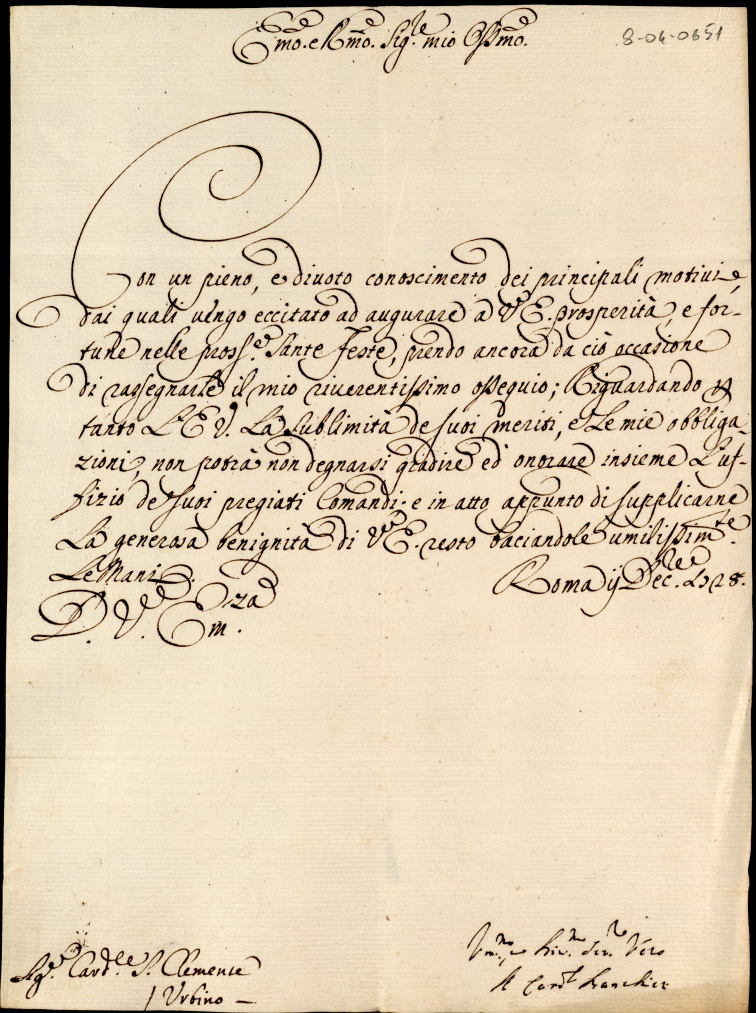 Emo. e Rmo. Sig.re mio Ossmo.
8-04-0651
Con un pieno, e divoto conoscimento dei principali motivi,
dai quali vengo eccitato ad augurare a V.E. prosperità, e for-
tune nelle pross.e Sante Feste, prendo ancora da ciò occasione
di rassegnarle il mio riverentissimo ossequio; Riguardando
tanto L'E.V. La sublimità de suoi meriti, e Le mie obbliga
zioni, non potrà non degnarsi gradire ed onorare insieme L'uf-
fizio de suoi pregiati Comandi. e in atto appunto di supplicarne
La generosa benignità di V.E. resto baciandole umilissim.te
Le Mani.
Roma Dec.re 1728.
D. V. Em.za
Sig.r Card.le S. Clemente
Urbino
Il Card.l